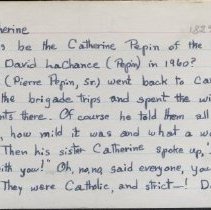 therine 182
s be the Catherine Pepin of the
David LaChance (Pepin) in 1960?
(Pierre Pepin, Sr.) went back to Ca
the brigade trips and spent the wi
nts there. Of course he told them all
, how mild it was and what a w
Then his sister Catherine spoke up,
ith you!" Oh, no, no, said everyone, yo
They were Catholic, and strict—! D